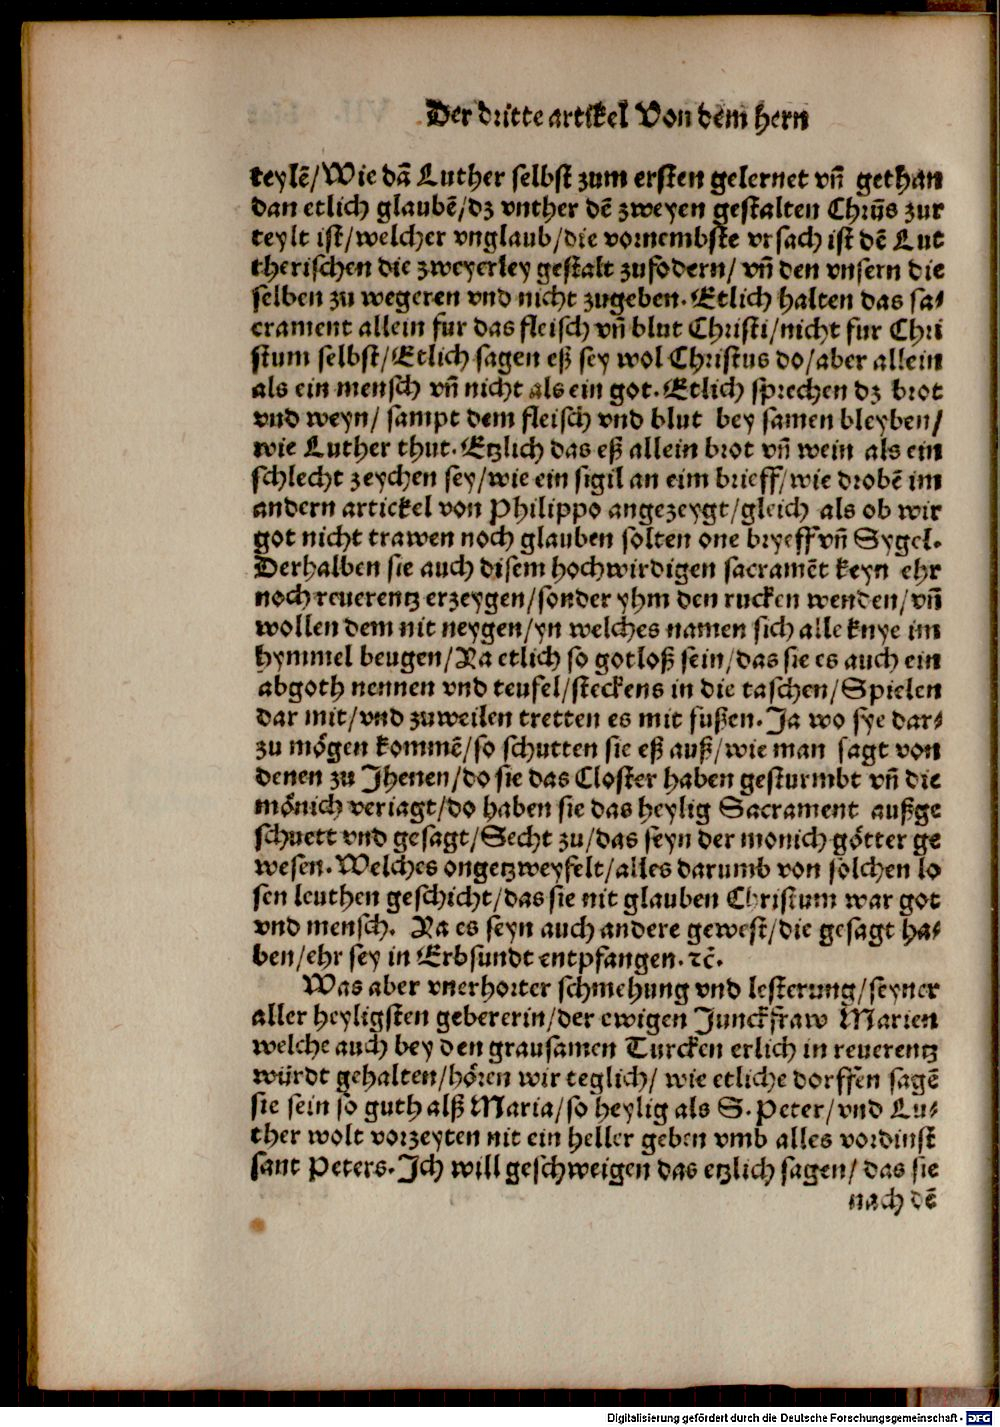 Der dritte artikel Von dem hern
teylẽ/Wie dã Luther selbst zum ersten gelernet vñ gethan
dan etlich glaubẽ/dz vnther dẽ zweyen gestalten Chrũs zur
teylt ist/welcher vnglaub/die vornembste vrsach ist dẽ Lut
therischen die zweyerley gestalt zufodern/ vñ den vnsern die
selben zu wegeren vnd nicht zugeben. Etlich halten das sa⸗
crament allein fur das fleisch vñ blut Christi/nicht fur Chri
stum selbst/Etlich sagen eß sey wol Christus do/aber allein
als ein mensch vñ nicht als ein got. Etlich sprechen dz brot
vnd weyn/ sampt dem fleisch vnd blut bey samen bleyben/
wie Luther thut. Etzlich das eß allein brot vñ wein als ein
schlecht zeychen sey/wie ein sigil an eim brieff/wie drobẽ im
andern artickel von Philippo angezeygt/gleich als ob wir
got nicht trawen noch glauben solten one bryeff vñ Sygel.
Derhalben sie auch disem hochwirdigen sacramẽt keyn ehr
noch reuerentz erzeygen/sonder yhm den rucken wenden/vñ
wollen dem nit neygen/yn welches namen sich alle knye im
hymmel beugen/Na etlich so gotloß sein/das sie es auch ein
abgoth nennen vnd teufel/steckens in die taschen/Spielen
dar mit/vnd zuweilen tretten es mit fußen. Ja wo sye dar⸗
zu mögen kommẽ/so schutten sie eß auß/wie man sagt von
denen zu Jhenen/do sie das Closter haben gesturmbt vñ die
mönich veriagt/do haben sie das heylig Sacrament außge
schuett vnd gesagt/Secht zu/das seyn der monich götter ge
wesen. Welches ongetzweyfelt/alles darumb von solchen lo
sen leuthen geschicht/das sie nit glauben Christum war got
vnd mensch. Na es seyn auch andere gewest/die gesagt ha⸗
ben/ehr sey in Erbsundt entpfangen. ꝛc̃.
Was aber vnerhorter schmehung vnd lesterung/seyner
aller heyligsten gebererin/der ewigen Junckfraw Marien
welche auch bey den grausamen Turcken erlich in reuerentz
würdt gehalten/hören wir teglich/ wie etliche dorffen sagẽ
sie sein so guth alß Maria/so heylig als S. Peter/vnd Lu⸗
ther wolt vorzeyten nit ein heller geben vmb alles vordinst
sant Peters. Ich will geschweigen das etzlich sagen/ das sie
nach dẽ
Digitalisierung gefördert durch die Deutsche Forschungsgemeinschaft - DFG